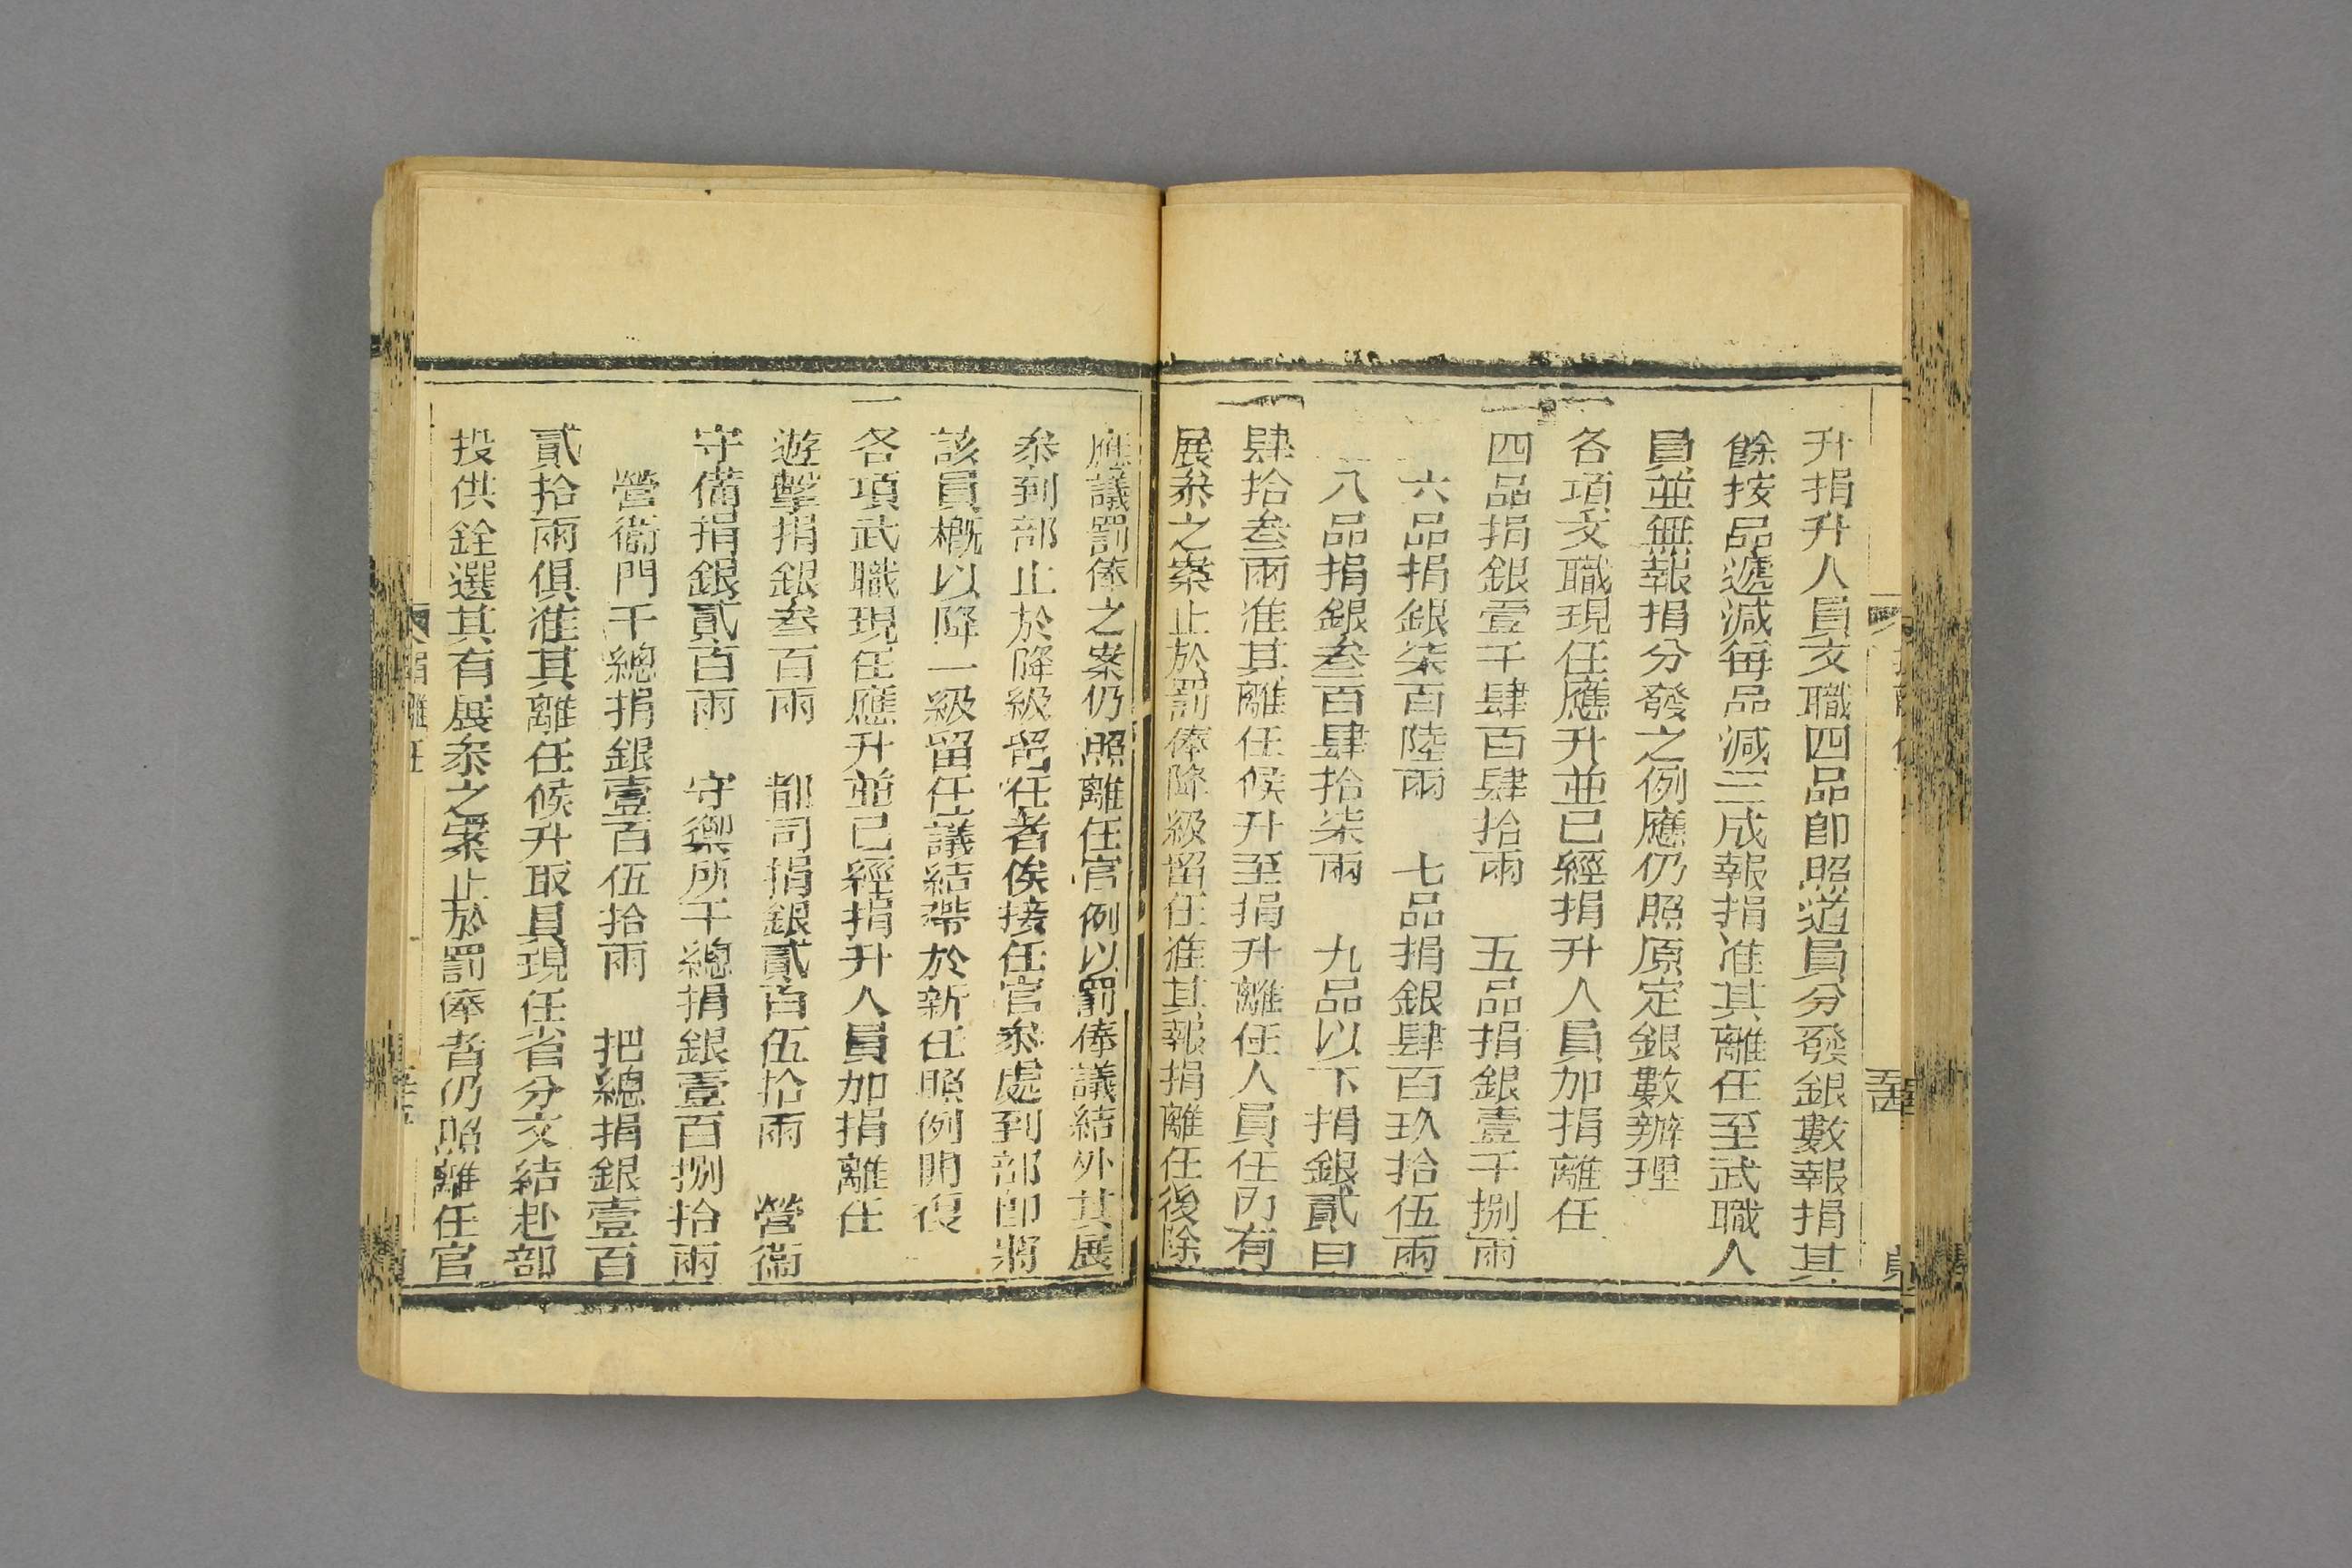 升捐升人員文職四品卽照道員分發銀數報捐其
餘按品遞減每品減三成報捐准其離任至武職人
員並無報捐分發之例應仍照原定銀數辦理
一各項文職現任應升並已經捐升人員加捐離任
四品捐銀壹千肆百肆拾兩　五品捐銀壹千捌兩
六品捐銀柒百陸兩　七品捐銀肆百玖拾伍兩
八品捐銀叁百肆拾柒兩　九品以下捐銀貳百
肆拾叁兩准其離任候升至捐升離任人員任內有
展叅之案止於罰俸降級留任准其報捐離任後除
應議罰俸之案仍照離任官例以罰俸議結外其展
叅到部止於降級留任者俟接任官叅處到部卽將
該員概以降一級留任議結帶於新任照例開復
一各項武職現任應升並已經捐升人員加捐離任
遊擊捐銀叁百兩　都司捐銀貳百伍拾兩　營衞
守備捐銀貳百兩　守禦所千總捐銀壹百捌拾兩
營衞門千總捐銀壹百伍拾兩　把總捐銀壹百
貳拾兩俱准其離任候升取具現任省分文結赴部
投供銓選其有展叅之案止於罰俸者仍照離任官